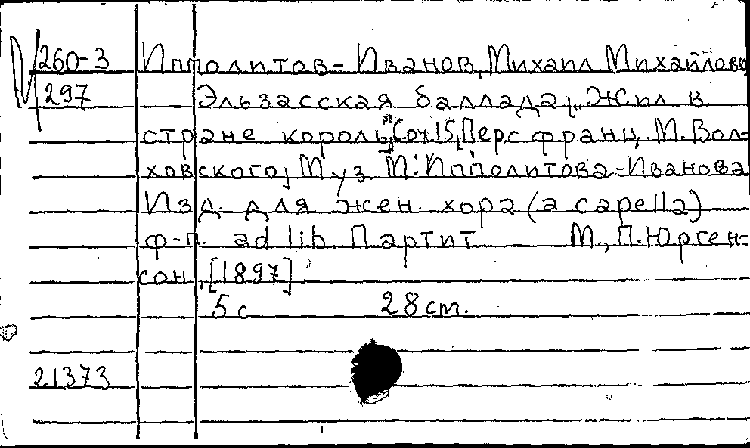 М 260-3 Ипполитов-Иванов, Михаил Михайлович
297 Эльзасская баллада „Жил в
стране король", Соч 15, Перс франц. М. Вол-
ховского, Муз М. Ипполитова-Иванова
Изд. для жен. хора (a capella)
ф-п. ad lib. Партит М., П. Юрген-
сон, [1897]
5 с 28 cm.
21373